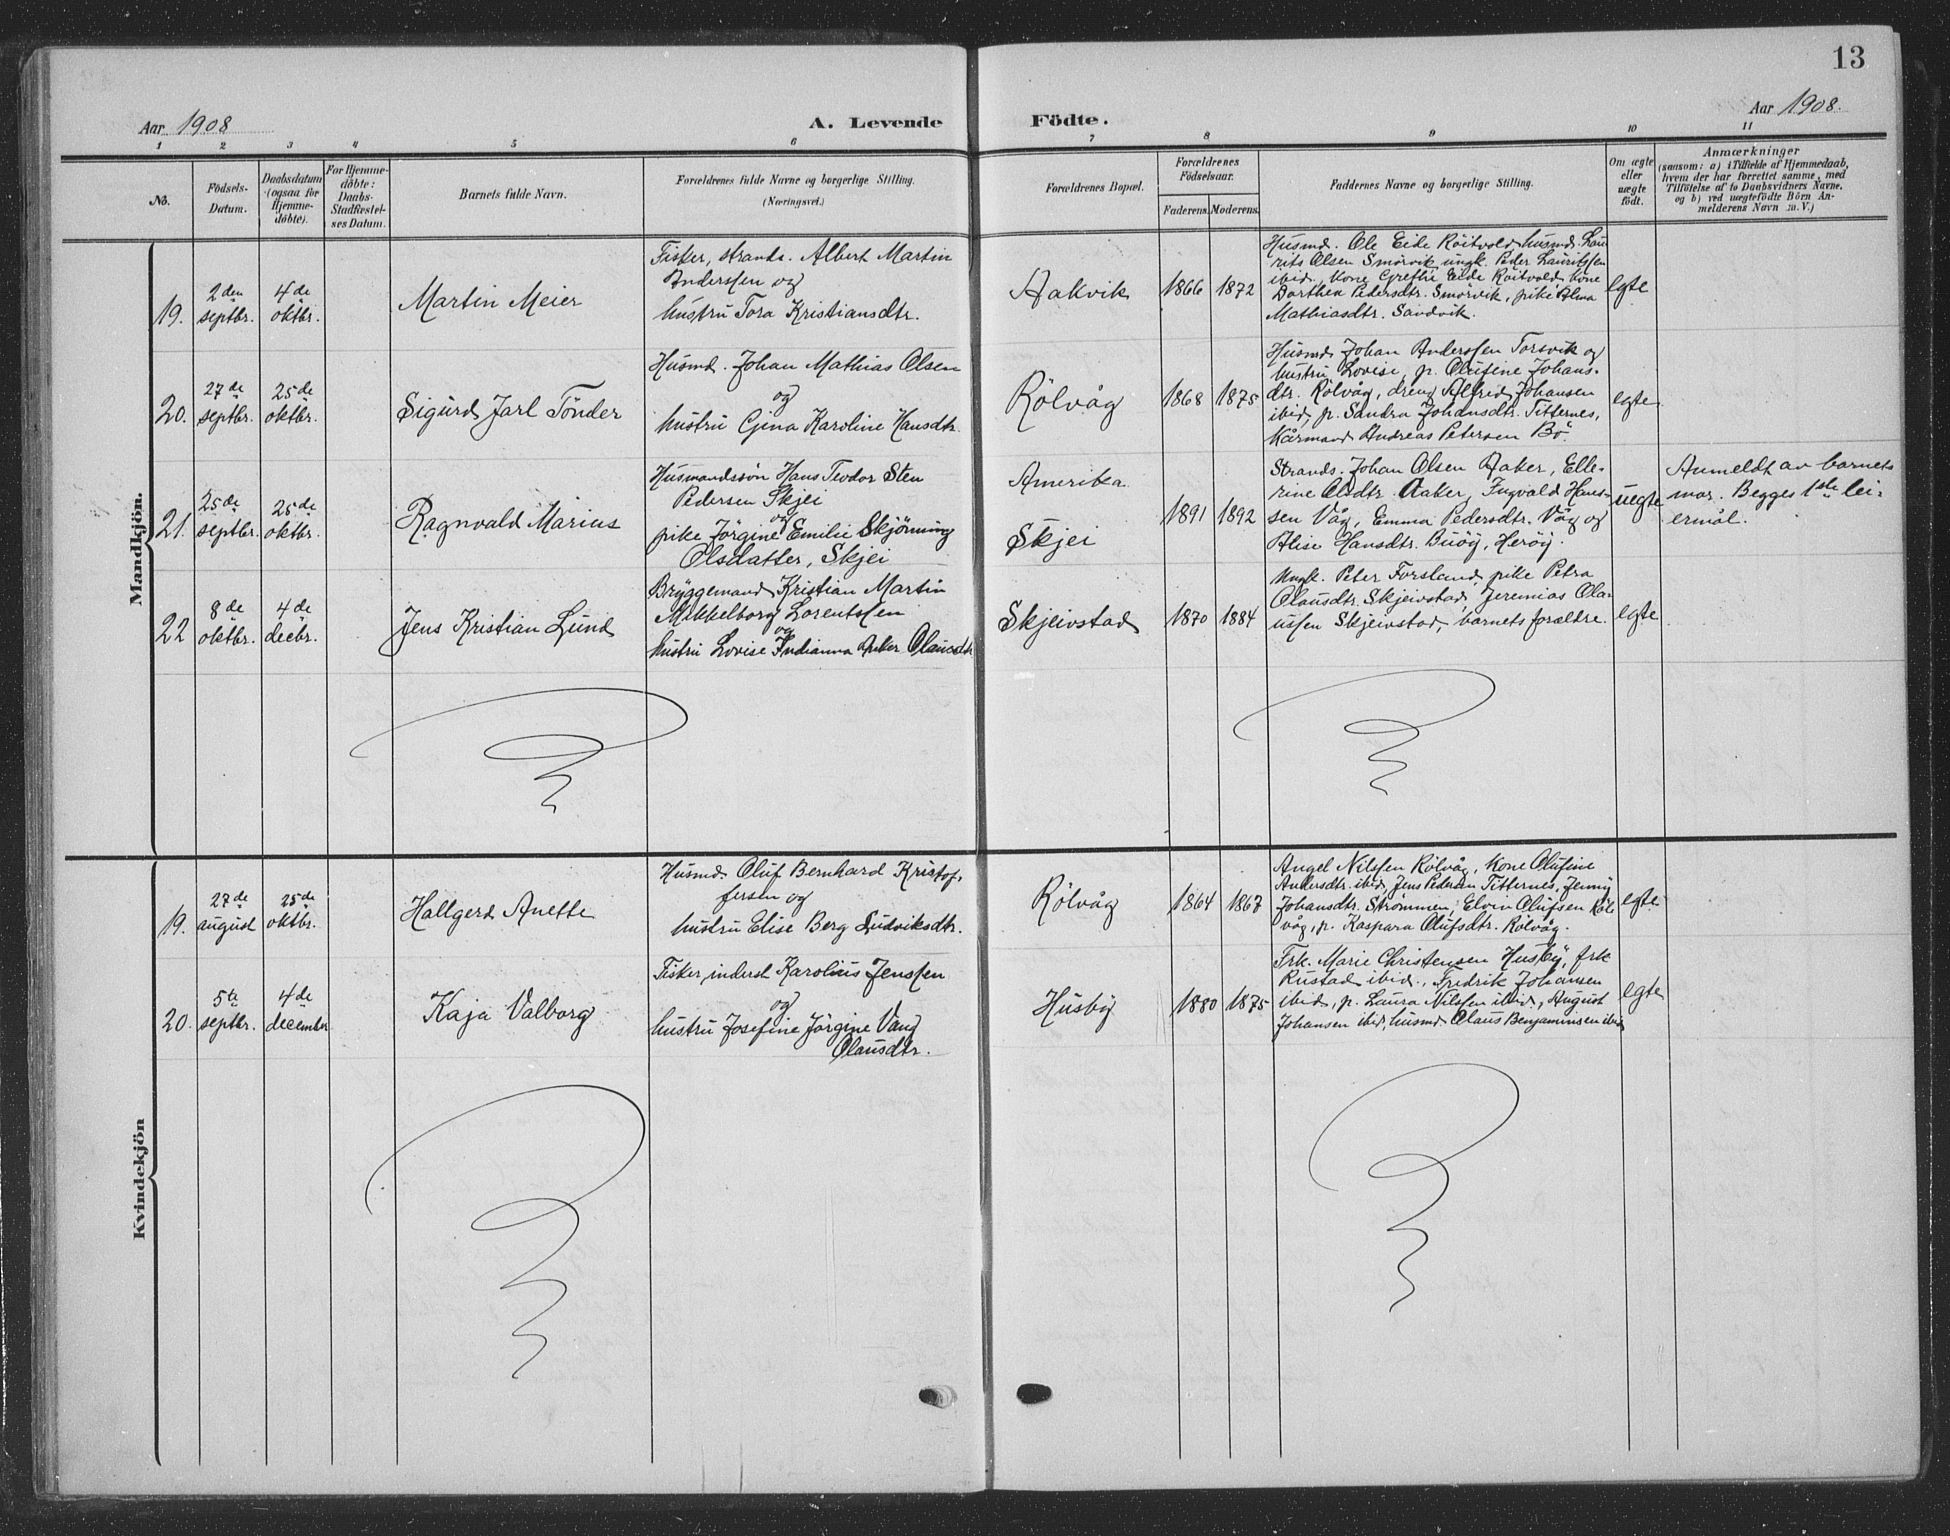 13
Aar 1908
A. Levende
Födte.
Aar 1908.
1 2 3 4 5 6 7 8 9 10 11
No.
Födsels-
Datum.
Daabsdatum
(ogsaa for
Hjemme-
döbte).
For Hjemme-
döbte:
Daabs-
Stadfestel-
ses Datum.
Barnets fulde Navn.
Forældrenes fulde Navne og borgerlige Stilling.
(Næringsvei.)
Forældrenes Bopæl.
Forældrenes
Födselsaar.
Faderens. Moderens.
Faddernes Navne og borgerlige Stilling.
Om ægte
eller
uægte
födt.
Anmærkninger
(saasom: a) i Tilfælde af Hjemmedaab,
hvem der har forrettet samme, med
Tilföielse af to Daabsvidners Navne,
og b) ved uægtefödte Börn An-
melderens Navn m. V.)
Mandkjön.
19.
2den
septbr.
4de
oktbr.
Martin Meier
Fisker, strands. Albert Martin
Anderssen og
hustru Tora Kristiansdtr.
Aakvik
1866 1872
Husmd. Ole Eide Röitvold, husmd. Lau
rits Olsen Smörvik, ungk. Peder Lauritssen
ibid, kone Grethe Eide Röitvold, kone
Dorthea Pedersdtr. Smörvik, pike Alma
Mathiasdtr. Sandvik.
egte
20.
27de
septbr.
25de
oktbr.
Sigurd Jarl Tönder
Husmd. Johan Mathias Olsen
og
hustru Gjina Karoline Hansdtr.
Rölvåg
1868 1875
Husmd Johan Anderssen Torsvik og
hustru Lovise, p. Olufine Johans-
dtr. Rölvåg, dreng Alfrid Johansen
ibid, p. Sandra Johansdtr. Titternes,
Kårmand Andreas Petersen Bö.
egte
21.
25de
septbr.
25de
oktbr.
Ragnvald Marius
Husmandssön Hans Teodor Sten
Pedersen Skjei
og
pike Jörgine Emilie Skjörning
Olsdatter, Skjei
Amerika
Skjei
1891 1892
Strands. Johan Olsen Aaker, Elle-
rine Olsdtr. Aaker, Ingvald Hans-
sen Våg, Emma Pedersdtr. Våg og
Alise Hansdtr. Buöy, Heröy.
uegte
Anmeldt av barnets
mor. Begges 1ste lei-
ermål.
22
8de
oktbr.
4de
decbr.
Jens Kristian Lund
Bryggemand Kristian Martin
Mikkelborg Lorentssen
og
hustru Lovise Indianna Anker Olausdtr
Skjeivstad
1870 1884
Ungk. Peter Forsland, pike Petra
Olausdtr. Skjeivstad, Jeremias Ola-
ussen Skjeivstad, barnets forældre.
egte
Kvindekjön
19.
27de
august
25de
oktbr.
Hallgerd Anette
Husmd Oluf Bernhard Kristof-
fersen og
hustru Elise Berg Ludviksdtr.
Rölvåg
1864 1867
Angel Nilssen Rölvåg, kone Olufine
Andersdtr. ibid, Jens Pedersen Titternes, Jenny
Johansdtr. Strömmen, Elvin Olufsen Röl-
våg, p. Kaspara Olufsdtr. Rölvåg.
egte
20.
5te
septbr.
4de
december
Kaja Valborg
Fisker, inderst Karolius Jenssen
og
hustru Josefine Jörgine Vang
Olausdtr.
Husby
1880 1875
Frk. Marie Christensen Husby, frk
Rustad ibid., Fredrik Johansen
ibid, p. Laura Nilssen ibid, August
Johansen ibid, husmd Olaus Benjaminsen ibid
egte